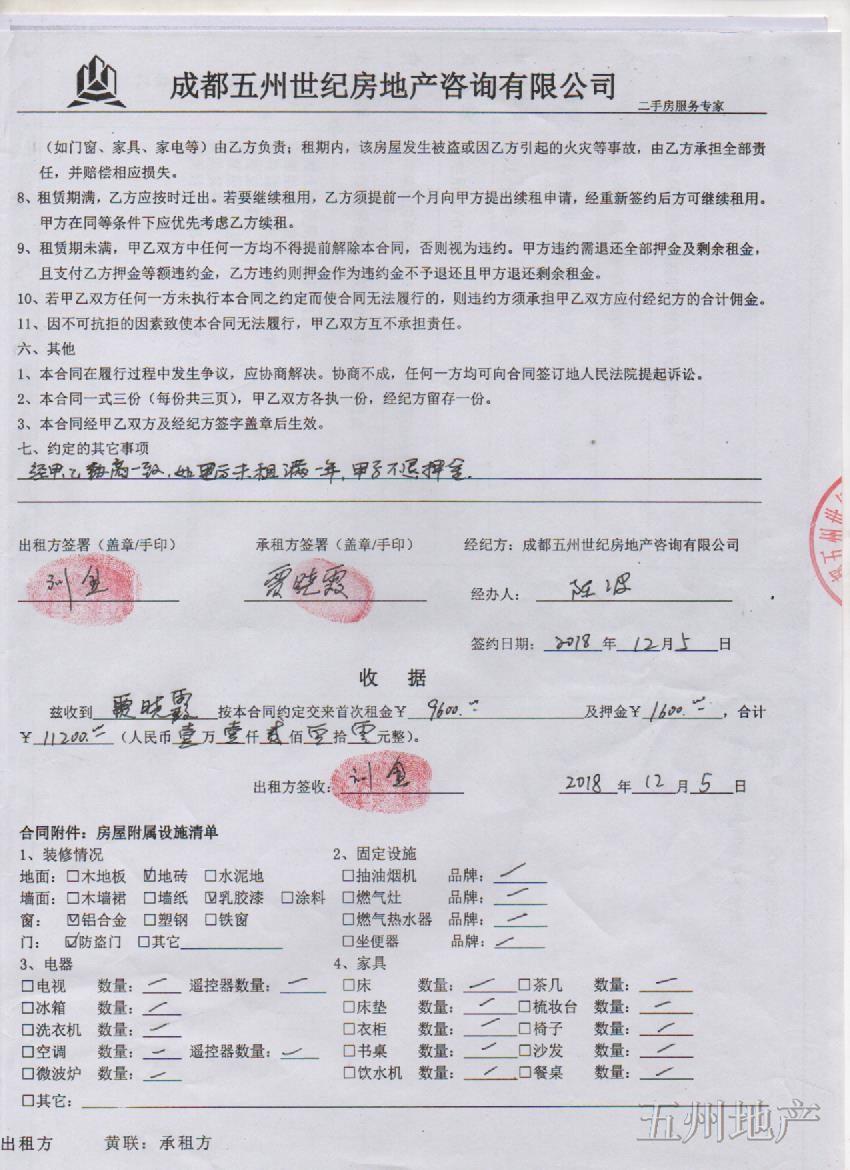 成都五州世纪房地产咨询有限公司
二手房服务专家
（如门窗、家具、家电等）由乙方负责；租期内，该房屋发生被盗或因乙方引起的火灾等事故，由乙方承担全部责
任，并赔偿相应损失。
8、租赁期满，乙方应按时迁出。若要继续租用，乙方须提前一个月向甲方提出续租申请，经重新签约后方可继续租用。
甲方在同等条件下应优先考虑乙方续租。
9、租赁期未满，甲乙双方中任何一方均不得提前解除本合同，否则视为违约。甲方违约需退还全部押金及剩余租金，
且支付乙方押金等额违约金，乙方违约则押金作为违约金不予退还且甲方退还剩余租金。
10、若甲乙双方任何一方未执行本合同之约定而使合同无法履行的，则违约方须承担甲乙双方应付经纪方的合计佣金。
11、因不可抗拒的因素致使本合同无法履行，甲乙双方互不承担责任。
六、其他
1、本合同在履行过程中发生争议，应协商解决。协商不成，任何一方均可向合同签订地人民法院提起诉讼。
2、本合同一式三份（每份共三页），甲乙双方各执一份，经纪方留存一份。
3、本合同经甲乙双方及经纪方签字盖章后生效。
七、约定的其它事项
经甲乙协商一致，如 未租满一年，甲方不退押金.
出租方签署（盖章/手印） 承租方签署（盖章/手印） 经纪方：成都五州世纪房地产咨询有限公司
刘 贾晓霞 经办人：陈
签约日期：2018 年 12 月 5 日
收 据
兹收到 贾晓霞 按本合同约定交来首次租金￥ 9600. 及押金￥ 1600. ，合计
￥ 11200. （人民币 壹 万 壹 仟 贰 佰 零 拾 零 元整）。
出租方签收：刘 2018 年 12 月 5 日
合同附件：房屋附属设施清单
1、装修情况 2、固定设施
地面：□木地板 ☑地砖 □水泥地 □抽油烟机 品牌：
墙面：□木墙裙 □墙纸 ☑乳胶漆 □涂料 □燃气灶 品牌：
窗： ☑铝合金 □塑钢 □铁窗 □燃气热水器 品牌：
门： ☑防盗门 □其它 □坐便器 品牌：
3、电器 4、家具
□电视 数量： 遥控器数量： □床 数量： □茶几 数量：
□冰箱 数量： □床垫 数量： □梳妆台 数量：
□洗衣机 数量： □衣柜 数量： □椅子 数量：
□空调 数量： 遥控器数量： □书桌 数量： □沙发 数量：
□微波炉 数量： □饮水机 数量： □餐桌 数量：
□其它：
五州地产
出租方 黄联：承租方